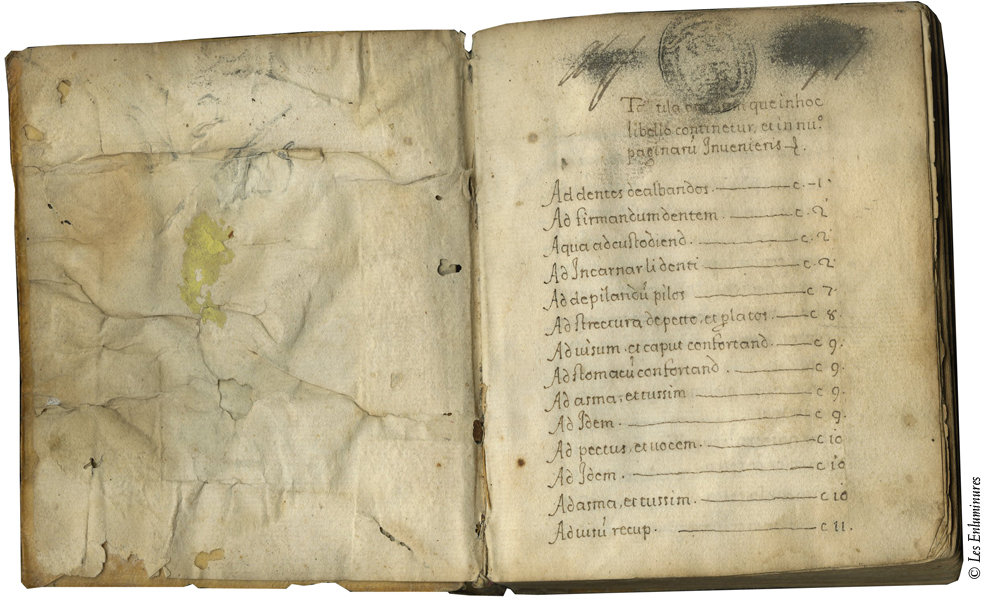 que in hoc
libello continetur, et in nu.º
paginarū Inuenteris
Ad dentes dealbandos c. 1
Ad firmandum dentem. c. 2
Aqua ad custodiend. c. 2
Ad Incarnar li denti c. 2
Ad depilandū pilos c 7
Ad strectura de petto, et platos. c 8.
Ad uisum, et caput confortand. c 9.
Ad stomacū confortand. c 9.
Ad asma, et tussim c 9.
Ad Idem. c 9.
Ad pectus, et uocem. c 10
Ad Idem. c 10
Ad asma, et tussim. c 10
Ad uisū recup. c 11.
© Les Enluminures